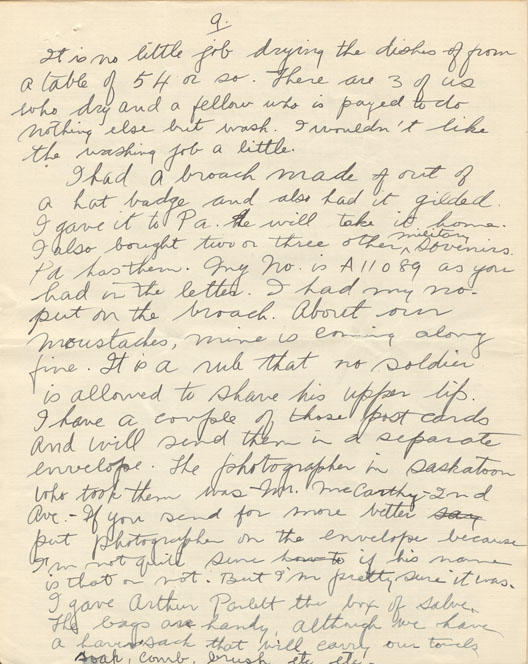 9.
It is no little job drying the dishes of from
a table of 54 or so. There are 3 of us
who dry and a fellow who is payed to do
nothing else but wash. I wouldn't like
the washing job a little.
I had a broach made of out of
a hat badge and also had it gilded.
I gave it to Pa. He will take it home.
I also bought two or three other military Sovenirs.
Pa has them. My No. is A11089 as you
had in the letter. I had my no.
put on the broach. About our
moustaches, mine is coming along
fine. It is a rule that no soldier
is allowed to shave his upper lip.
I have a couple of those post cards
and will send them in a separate
envelope. The photographer in Saskatoon
who took them was Mr. McCarthy-2nd
Ave. - If you send for more better say
put photographer on the envelope because
I'm not quite sure how to if his name
is that or not. But I'm pretty sure it was.
I gave Arthur the box of salve.
The bags are handy, although we have
a haversack that will carry our towels
soap, comb, brush etc. etc.